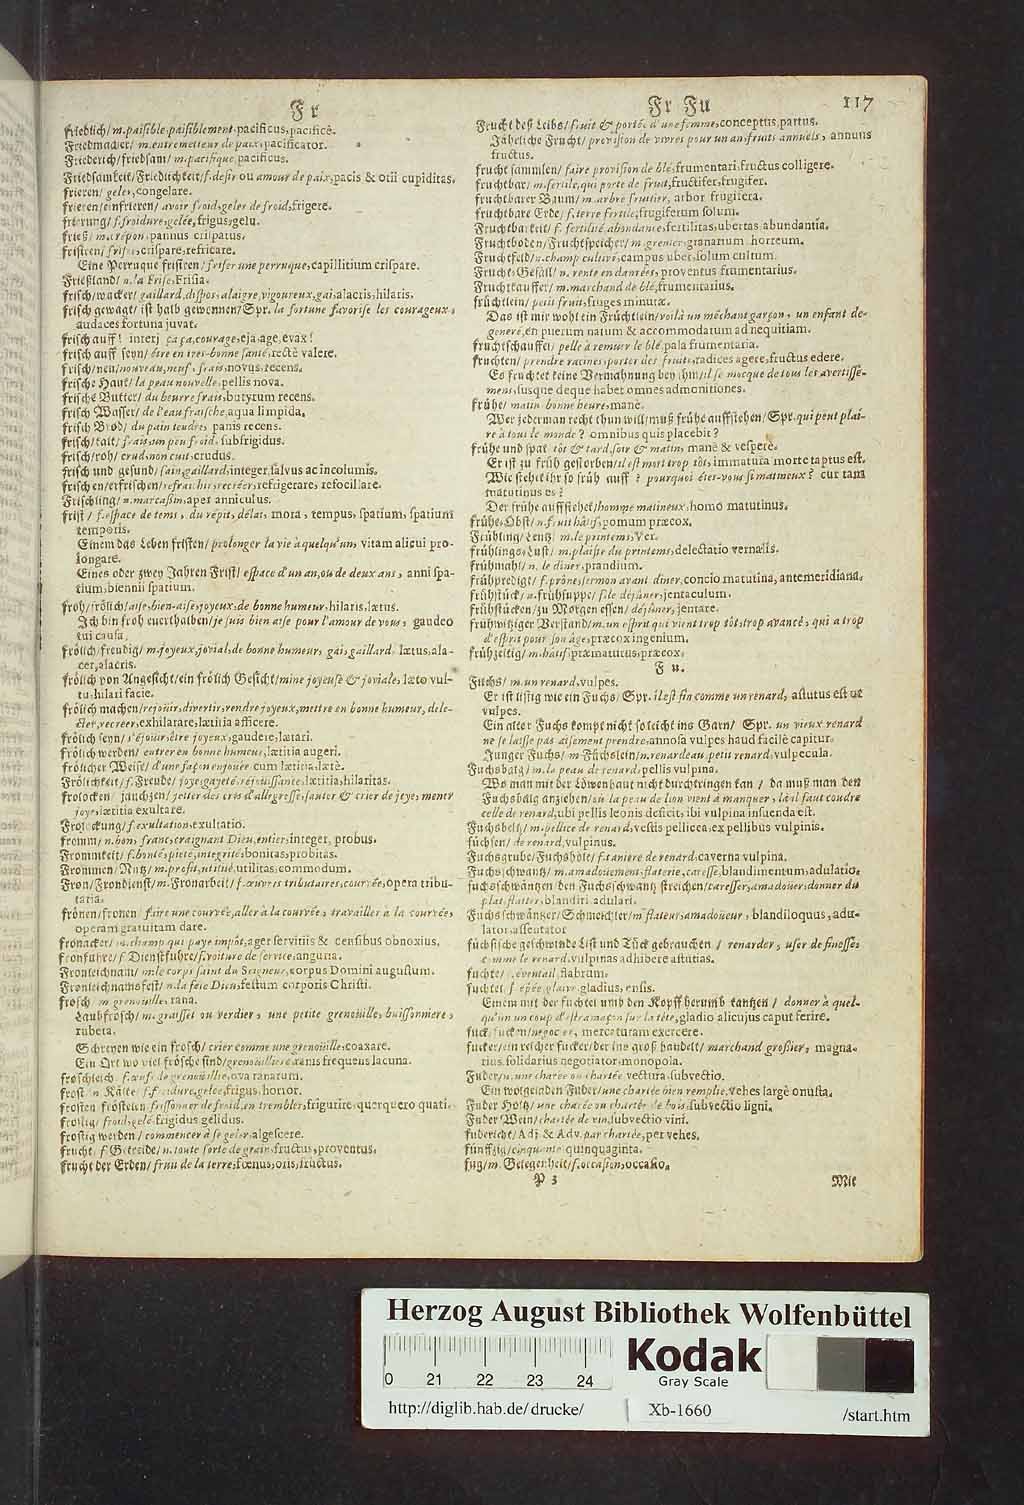 Fr
friedlich/ m. paisible, paisiblement, pacificus, pacificè.
Friedmacher/ m. entremetteur de paix, pacificator.
Friederich/ friedsam/ m. pacifique, pacificus.
Friedsamkeit/ Friedlichkeit/ f. desir ou amour de paix, pacis & otii cupiditas.
frieren/ geler, congelare.
frieren/ einfrieren/ avoir froid, geler de froid, frigere.
frierung/ f. froidure, gelée, frigus, gelu.
frieß/ pannus crispatus.
fristren/ friser, crispare, refricare.
Eine Perruque fristren/ friser une perruque, capillitium crispare.
Frießland/ n. la Frise, Frisia.
frisch/ wacker/ gaillard, dispos, alaigre, vigoureux, gai, alacris, hilaris.
frisch gewagt/ ist halb gewonnen/ Spr. la fortune favorise les courageux,
audaces fortuna juvat.
frisch auff! interj. ça ça, courage, eja age, evax!
frisch auff seyn/ être en tres-bonne santé, rectè valere.
frisch/ neu/ nouveau, neuf, frais, novus, recens.
frische Haut/ la peau nouvelle, pellis nova.
frische Butter/ du beurre frais, butyrum recens.
frisch Wasser/ de l'eau fraische, aqua limpida.
frisch Brod/ du pain tendre, panis recens.
frisch/ kalt/ frais, un peu froid, subfrigidus.
frisch/ roh/ crud, non cuit, crudus.
frisch und gesund/ sain, gaillard, integer, salvus ac incolumis.
frischen/ erfrischen/ refraichir, recréer, refrigerare, refocillare.
Frischling/ n. marcassin, aper anniculus.
frist/ f. espace de tems, du répit, délai, mora, tempus, spatium, spatium
temporis.
Einem das Leben fristen/ prolonger la vie à quelqu'un, vitam alicui pro-
longare.
Eines oder zwey Jahren Frist/ espace d'un an, ou de deux ans, anni spa-
tium, biennii spatium.
froh/ frölich/ aise, bien-aise, joyeux, de bonne humeur, hilaris, lætus.
Ich bin froh euerthalben/ je suis bien aise pour l'amour de vous, gaudeo
tui causa.
frölich, freudig/ m. joyeux, jovial, de bonne humeur, gai, gaillard, lætus, ala-
cer, alacris.
frölich von Angesicht/ ein frölich Gesicht/ mine joyeuse & joviale, læto vul-
tu, hilari facie.
frölich machen/ rejouir, divertir, rendre joyeux, mettre en bonne humeur, dele-
cter, recréer, exhilarare, lætitia afficere.
frölich seyn/ s'éjouir, être joyeux, gaudere, lætari.
frölich werden/ entrer en bonne humeur, lætitia augeri.
frölicher Weise/ d'une façon enjouée, cum lætitia, lætè.
Frölichkeit/ f. Freude/ joye, gayeté, réjouissance, lætitia, hilaritas.
frolocken/ jauchzen/ jetter des cris d'allegresse, sauter & crier de joye, mener
joye, lætitia exultare.
Frolockung/ f. exultation, exultatio.
fromm/ n. bon, franc, craignant Dieu, entier, integer, probus.
Frommkeit/ f. bonté, pieté, integrité, bonitas, probitas.
Frommen/ Nutz/ m. profit, utilité, utilitas, commodum.
Fron/ Frondienst/ m. Fronarbeit/ f. œuvres tributaires, courvée, opera tribu-
taria.
frönen/ fronen/ faire une courvée, aller à la courvée, travailler à la courvée,
operam gratuitam dare.
fronacker/ m. champ qui paye impôt, ager servitiis & censibus obnoxius.
fronfuhre/ f. Dienstfuhre/ f. voiture de service, anguria.
Fronleichnam/ m. le corps saint du Seigneur, corpus Domini augustum.
Fronleichnamsfest/ n. la fête Dieu, festum corporis Christi.
frosch/ m. grenoüille, rana.
Laubfrosch/ m. graisset ou verdier, une petite grenoüille, buissonniere,
rubeta.
Schreyen wie ein frosch/ crier comme une grenoüille, coaxare.
Ein Ort wo viel frösche sind/ grenoüilliere, ranis frequens lacuna.
froschleich/ f. œufs de grenoüille, ova ranarum.
frost/ n. Kälte/ f. froidure, gelée, frigus, horror.
frosten/ frösteln/ frissonner de froid, en trembler, frigutire, querquero quati.
frostig/ froid, gelé, frigidus, gelidus.
frostig werden/ commencer à se geler, algescere.
frucht/ f. Getreide/ n. toute sorte de grain, fructus, proventus.
frucht der Erden/ fruit de la terre, fœnus, oris, fructus.
Fr Fu 117
Frucht deß Leibs/ fruit & portée d'une femme, conceptus, partus.
Jährliche Frucht/ provision de vivres pour un an, fruits annuels, annuus
fructus.
frucht samlen/ faire provision de blé, frumentari, fructus colligere.
fruchtbar/ m. fertile, qui porte de fruit, fructifer, frugifer.
fruchtbarer Baum/ m. arbre fruitier, arbor frugifera.
fruchtbare Erde/ f. terre fertile, frugiferum solum.
Fruchtbarkeit/ f. fertilité, abondance, fertilitas, ubertas, abundantia.
Fruchtboden/ Fruchtspeicher/ m. grenier, granarium, horreum.
Fruchtfeld/ n. champ cultivé, campus uber, solum cultum.
Frucht-Gefäll/ n. rente en danrées, proventus frumentarius.
Fruchtkauffer/ m. marchand de blé, frumentarius.
früchtlein/ petit fruit, fruges minutæ.
Das ist mir wohl ein Früchtlein/ voilà un méchant garçon, un enfant de-
generé, en puerum natum & accommodatum ad nequitiam.
fruchtschauffel/ pelle à remuer le blé, pala frumentaria.
fruchten/ prendre racines, porter des fruits, radices agere, fructus edere.
Es fruchtet keine Vermahnung bey ihm/ il se mocque de tous les avertisse-
mens, susque deque habet omnes admonitiones.
frühe/ matin, bonne heure, manè.
Wer jederman recht thun will/ muß frühe auffstehen/ Spr. qui peut plai-
re à tous le monde? omnibus quis placebit?
frühe und spat/ tôt & tard, soir & matin, manè & vesperè.
Er ist zu früh gestorben/ il est mort trop tôt, immatura morte raptus est.
Wie stehet ihr so früh auff? pourquoi éter-vous si matineux? cur tam
matutinus es?
Der frühe auffstehet/ homme matineux, homo matutinus.
frühe-Obst/ n. fruit hâtif, pomum præcox.
Frühling/ Lentz/ m. le printems, Ver.
frühlings-Lust/ m. plaisir du printems, delectatio vernalis.
frühmahl/ n. le diner, prandium.
frühpredigt/ f. prône, sermon avant diner, concio matutina, antemeridiana.
frühstück/ n. frühsuppe/ f. le déjûner, jentaculum.
frühstücken/ zu Morgen essen/ déjûner, jentare.
frühwitziger Verstand/ m. un esprit qui vient trop tôt, trop avancé, qui a trop
d'esprit pour son âge, præcox ingenium.
frühzeitig/ m. hâtif, præmaturus, præcox.
Fu.
Fuchs/ m. un renard, vulpes.
Er ist listig wie ein Fuchs/ Spr. il est fin comme un renard, astutus est ut
vulpes.
Ein alter Fuchs kompt nicht so leicht ins Garn/ Spr. un vieux renard
ne se laisse pas aisement prendre, annosa vulpes haud facilè capitur.
Junger Fuchs/ m. Füchslein/ n. renardeau, petit renard, vulpecula.
Fuchsbalg/ m. la peau de renard, pellis vulpina.
Wo man mit der Löwenhaut nicht durchtringen kan/ da muß man den
Fuchsbalg anziehen/ où la peau de lion vient à manquer, là il faut coudre
celle de renard, ubi pellis leonis deficit, ibi vulpina insuenda est.
Fuchsbeltz/ m. pelice de renard, vestis pellicea, ex pellibus vulpinis.
füchsen/ de renard, vulpinus.
Fuchsgrube/ Fuchshöle/ f. taniere de renard, caverna vulpina.
Fuchsschwantz/ m. amadoüement, flaterie, caresse, blandimentum, adulatio.
fuchsschwäntzen/ den Fuchsschwantz streichen/ caresser, amadoüer, donner du
plat, flatter, blandiri, adulari.
Fuchsschwäntzer/ Schmeichler/ m. flateur, amadoüeur, blandiloquus, adu-
lator, assentator.
füchsische geschwinde List und Tück gebrauchen/ renarder, user de finesses
comme le renard, vulpinas adhibere astutias.
fuchte/ éventail, flabrum.
fuchtel/ f. epée, glaive, gladius, ensis.
Einem mit der fuchtel umb den Kopff herumb tantzen/ donner à quel-
qu'un un coup d'estramaçon sur la tête, gladio alicujus caput ferire.
fuckern/ negocier, mercaturam exercere.
fucker/ ein reicher fucker/ der ins groß handelt/ marchand grossier, magna-
rius, solidarius negotiator, monopola.
Fuder/ n. une charée ou chartée, vectura, subvectio.
Ein wolgeladen Fuder/ une chartée bien remplie, vehes largè onusta.
Fuder Holtz/ une charée ou chartée de bois, subvectio ligni.
Fuder Wein/ chartée de vin, subvectio vini.
fudericht/ Adj. & Adv. par chartée, per vehes.
fünffzig/ cinquante, quinquaginta.
fug/ m. Gelegenheit/ f. occasion, occasio.
P 3 Mit
Herzog August Bibliothek Wolfenbüttel
Kodak
Gray Scale
0 21 22 23 24
http://diglib.hab.de/drucke/ Xb-1660 /start.htm